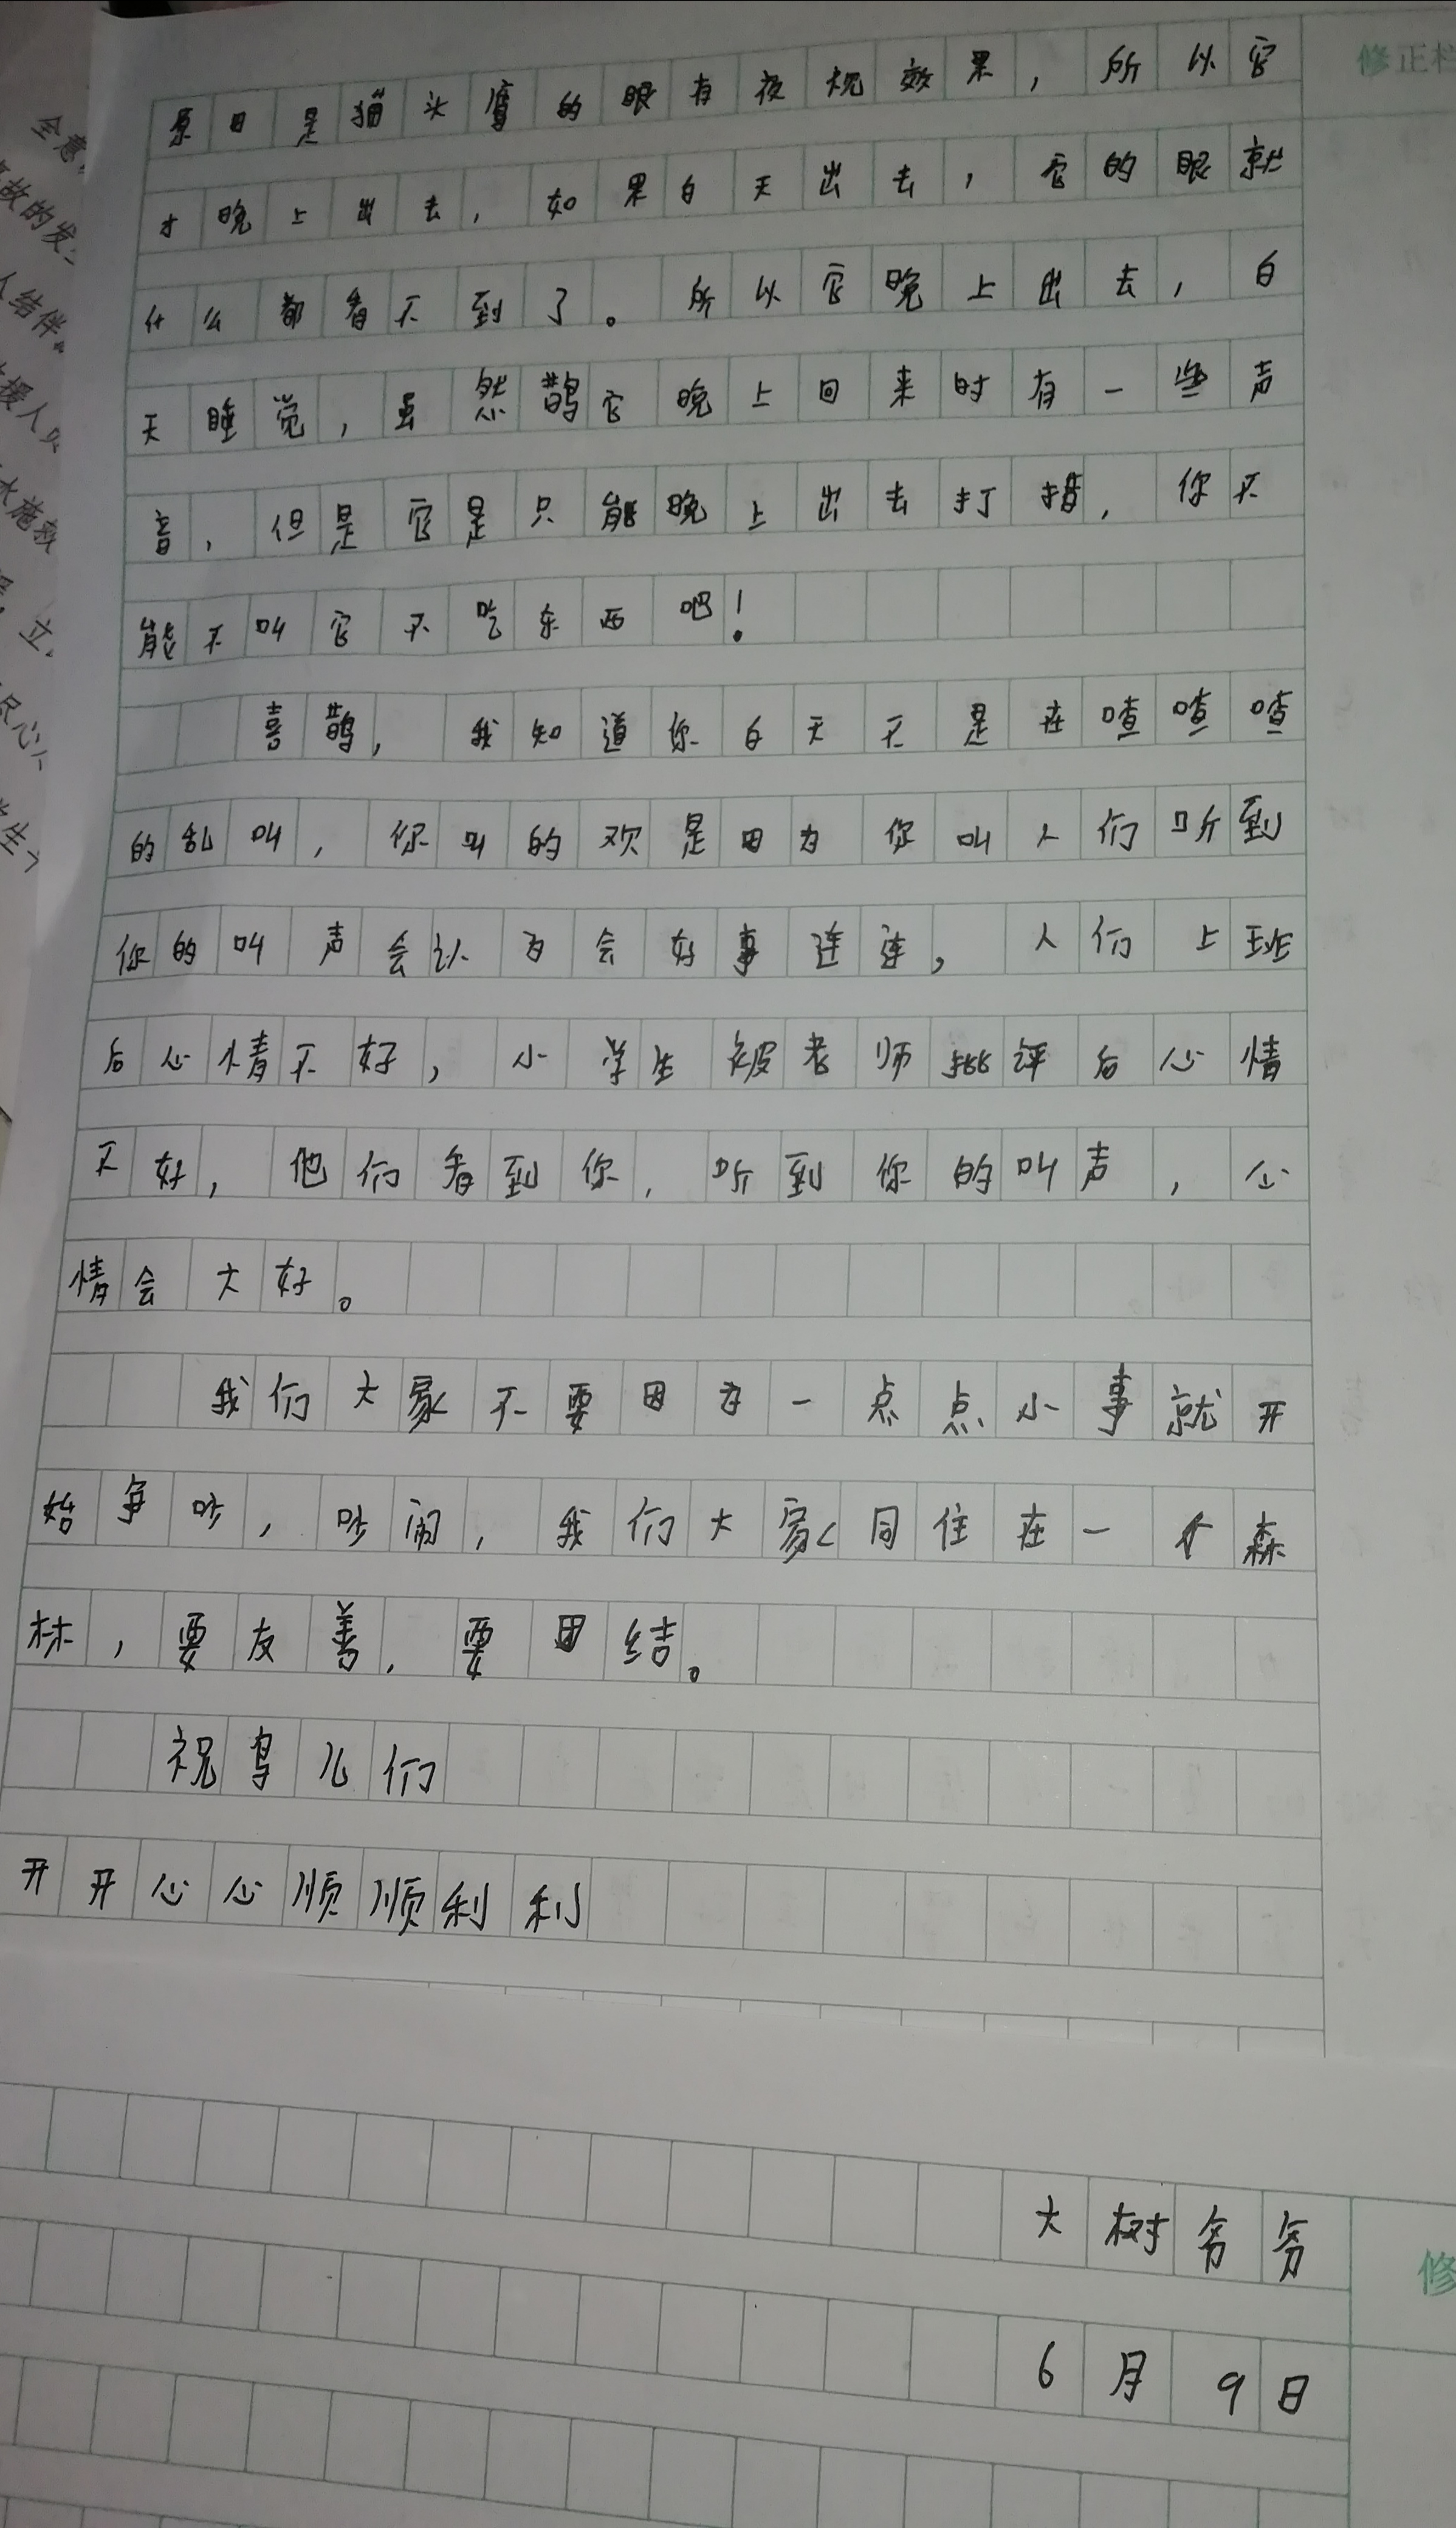 修正栏
原因是猫头鹰的眼有夜视效果，所以它
才晚上出去，如果白天出去，它的眼就
什么都看不到了。所以它晚上出去，白
天睡觉，虽然鹊它晚上回来时有一些声
音，但是它是只能晚上出去打措，你不
能不叫它不吃东西吧！
喜鹊，我知道你白天不是在喳喳喳
的乱叫，你叫的欢是因为你叫人们听到
你的叫声会认为会好事连连，人们上班
后心情不好，小学生被老师批评后心情
不好，他们看到你，听到你的叫声，心
情会大好。
我们大家不要因为一点点小事就开
始争吵，吵闹，我们大家同住在一个森
林，要友善，要团结。
祝鸟儿们
开开心心顺顺利利
大树爷爷
6月9日
修
全意
故的发
人结伴
援人
水施救
立
尽心
生